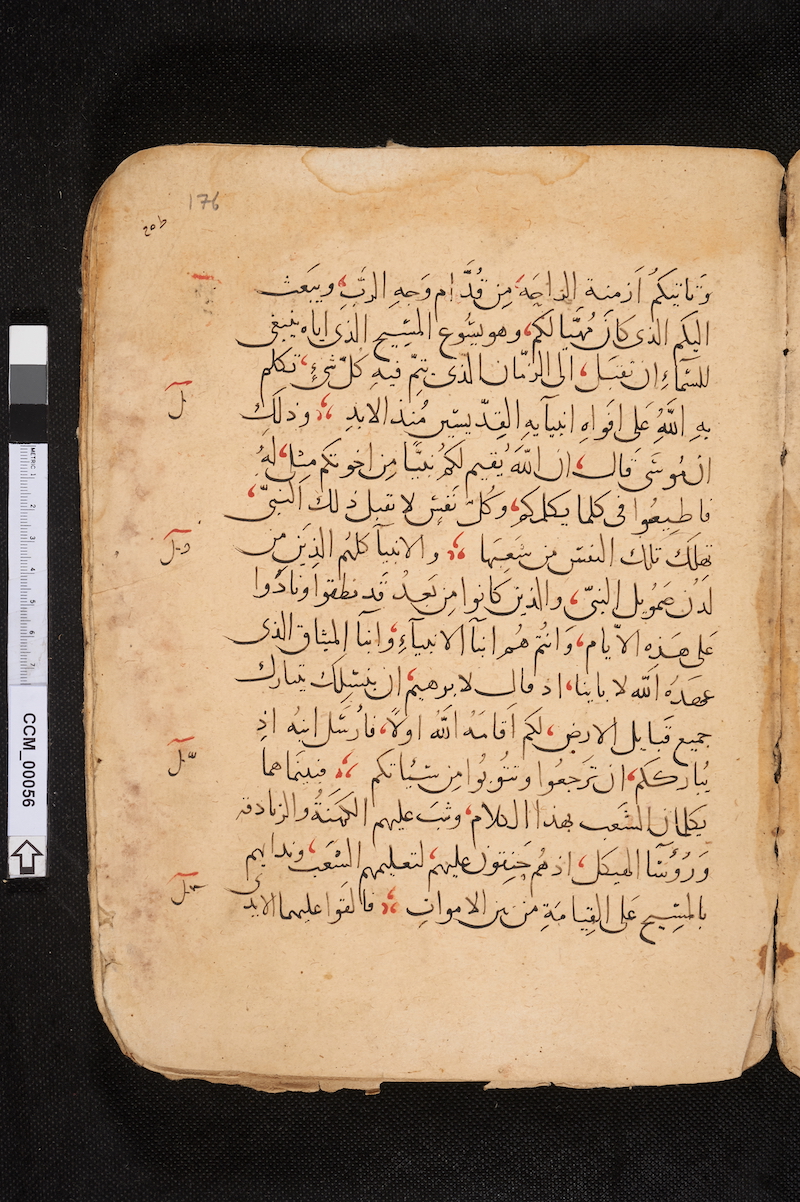 176
وَتاتيكمُ اَزمنة الراحَة، مِن قُدَّام وَجهِ الرَّبِّ، ويبَعَث
اليكم الذى كانَ مُهَيّا لَكم، وهو يسُوع المسِيح الَّذى اياه ينبغى
للسَّمآءِ ان تقبَل، الى الزمّان الذى يتِمّ فيهِ كُلّ شئٍ، تكلم
بهِ اللّهُ عَلى افوَاهِ انبيآيهِ القِدّيسِين مُنذ الابدِ ؛ وذلك
ان مُوسَى قال، ان اللّهَ يُقيم لكمُ نبيًّا مِن اخوتكم مِثلى، لهُ
فاطِيعُوا فى كلما يكلمكم، وكُلّ نَفسٍ لا تقبل ذلك النبىّ،
تهلَك تلك النفس من شعبَها ؛ والانبيآ كلهُم الذِين من
لَدُن صَمُويل النبىّ، والذين كانوا مِن بَعدُ قد نطقوا ونادَوا
عَلى هَذِه الاَّيام، وَانتُم هُم ابنآ الانبيآءِ، وابنآ الميثاق الذى
عهَدَهُ اللّه لاباينا، اذ قال لابرهيم، ان بنسلِك يتبارك
جميع قبايل الارض، لكم اَقامَهُ اللّهُ اولًا، فارُسَل ابنهُ اذِ
يُباركَكم، ان تَرجَعُوا وتتُوبُوا مِن سَيّاتكم ؛ فبينَما هما
يكلمان الشَعب بهذا الكلام، وثبَ عليهم الكهَنَةُ والزنادقه
وَرُؤَسَآ الهيكل، اذ هُم حَنِقون عليهم، لتعليمهم الشعَب، وندايهم
بالمسِيح عَلى القِيامَةِ من بين الامواتِ ؛ فالقَوا عليهما الايدى